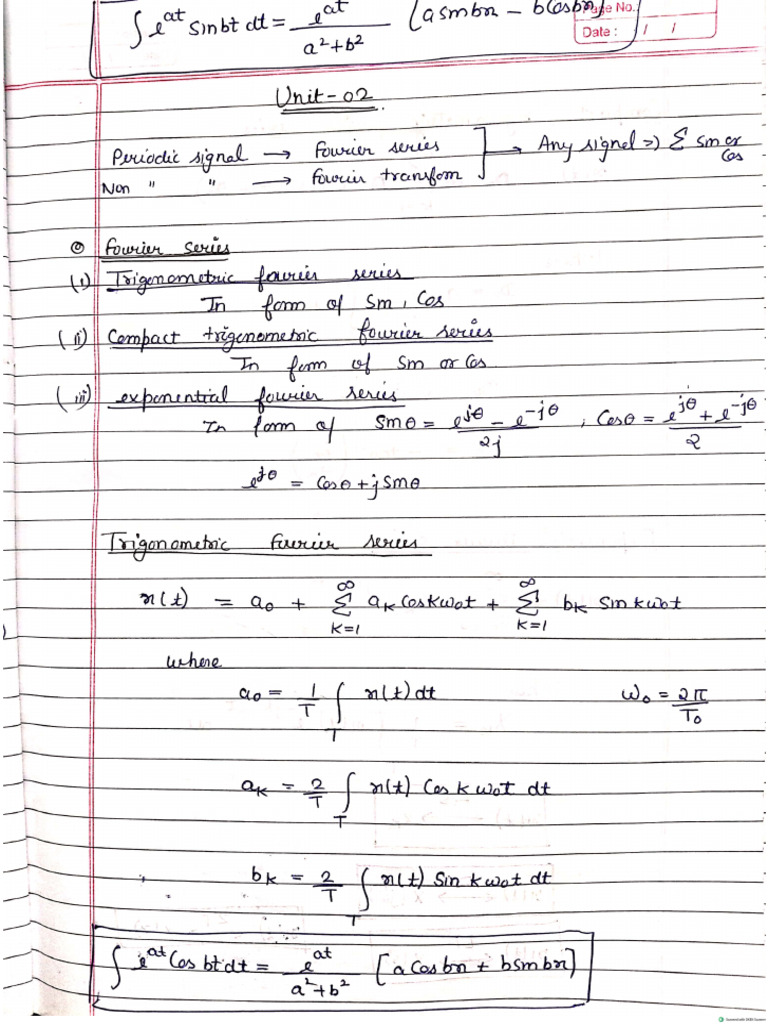 ∫ e^at Sinbt dt = e^at / a²+b² [a sin bx – b Cos bx]
Page No.
Date : / /
Unit-02
Periodic signal → Fourier series
Non " " → Fourier transfom
→ Any signal => Σ Sin or Cos
⊙ Fourier series
(i) Trigenometric fourier series
In form of Sin, Cos
(ii) Compact trigenometric fourier series
In form of Sin or Cos
(iii) exponential fourier series
In form of Sinθ = e^jθ – e^-jθ / 2j , Cosθ = e^jθ + e^-jθ / 2
e^jθ = Cosθ + j Sinθ
Trigonometric Fourier series
x(t) = a₀ + Σ_{K=1}^{∞} a_K cos kω₀t + Σ_{K=1}^{∞} b_K Sin kω₀t
where
a₀ = 1/T ∫_T x(t) dt ω₀ = 2π/T₀
a_K = 2/T ∫_T x(t) Cos k ω₀t dt
b_K = 2/T ∫_T x(t) Sin k ω₀t dt
∫ e^at Cos bt dt = e^at / a²+b² [a Cos bx + b sin bx]